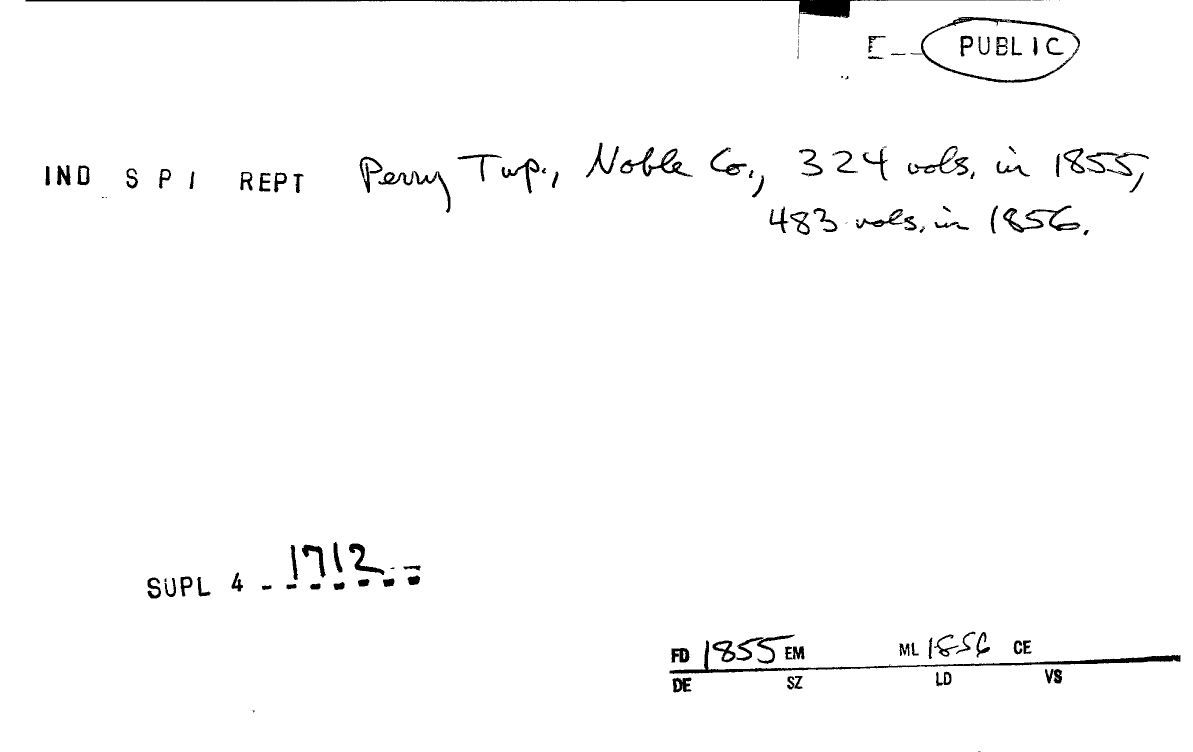 [__ PUBLIC
IND S P I REPT Perry Twp., Noble Co., 324 vols. in 1855,
483 vols. in 1856.
SUPL 4 - 1712
FD 1855 EM ML 1856 CE
DE SZ LD VS